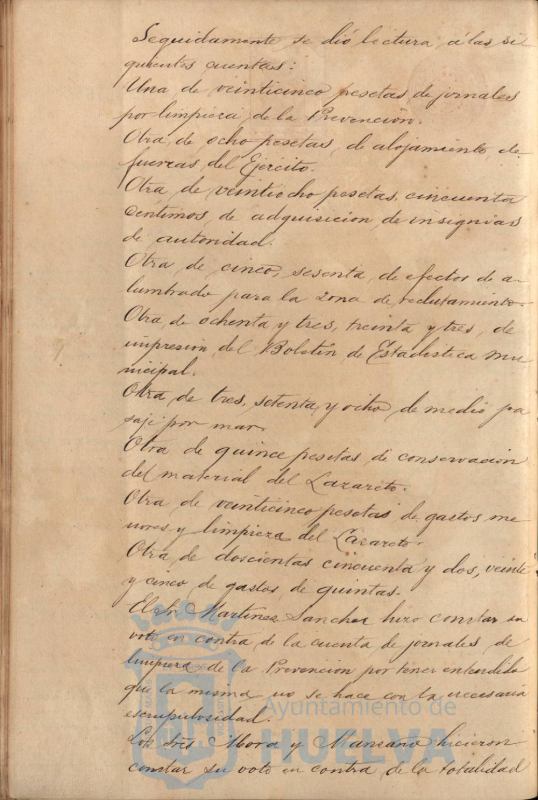 Seguidamente se dió lectura á las si
guientes cuentas:
Una de veinticinco pesetas de jornales
por limpieza de la Prevención.
Otra de ocho pesetas, de alojamiento de
fuerzas del Ejército.
Otra de veintiocho pesetas, cincuenta
centimos, de adquisicion de insignias
de autoridad.
Otra de cinco, sesenta, de efectos de a-
lumbrado para la zona de reclutamiento.
Otra de ochenta y tres, treinta y tres, de
impresion del Boletin de Estadistica mu
nicipal.
Otra de tres, setenta y ocho de medio pa
saje por mar.
Otra de quince pesetas de conservacion
del material del Lazareto.
Otra de veinticinco pesetas de gastos me
nores y limpieza del Lazareto.
Otra de doscientas cincuenta y dos, veinte
y cinco de gastos de quintas.
El Sr Martinez Sanchez hizo constar su
voto en contra de la cuenta de jornales de
limpieza de la Prevencion por tener entendido
que la misma no se hace con la necesaria
escrupulosidad.
Los Sres Mora y Manzano hicieron
constar su voto en contra de la totalidad
Ayuntamiento de
HUELVA